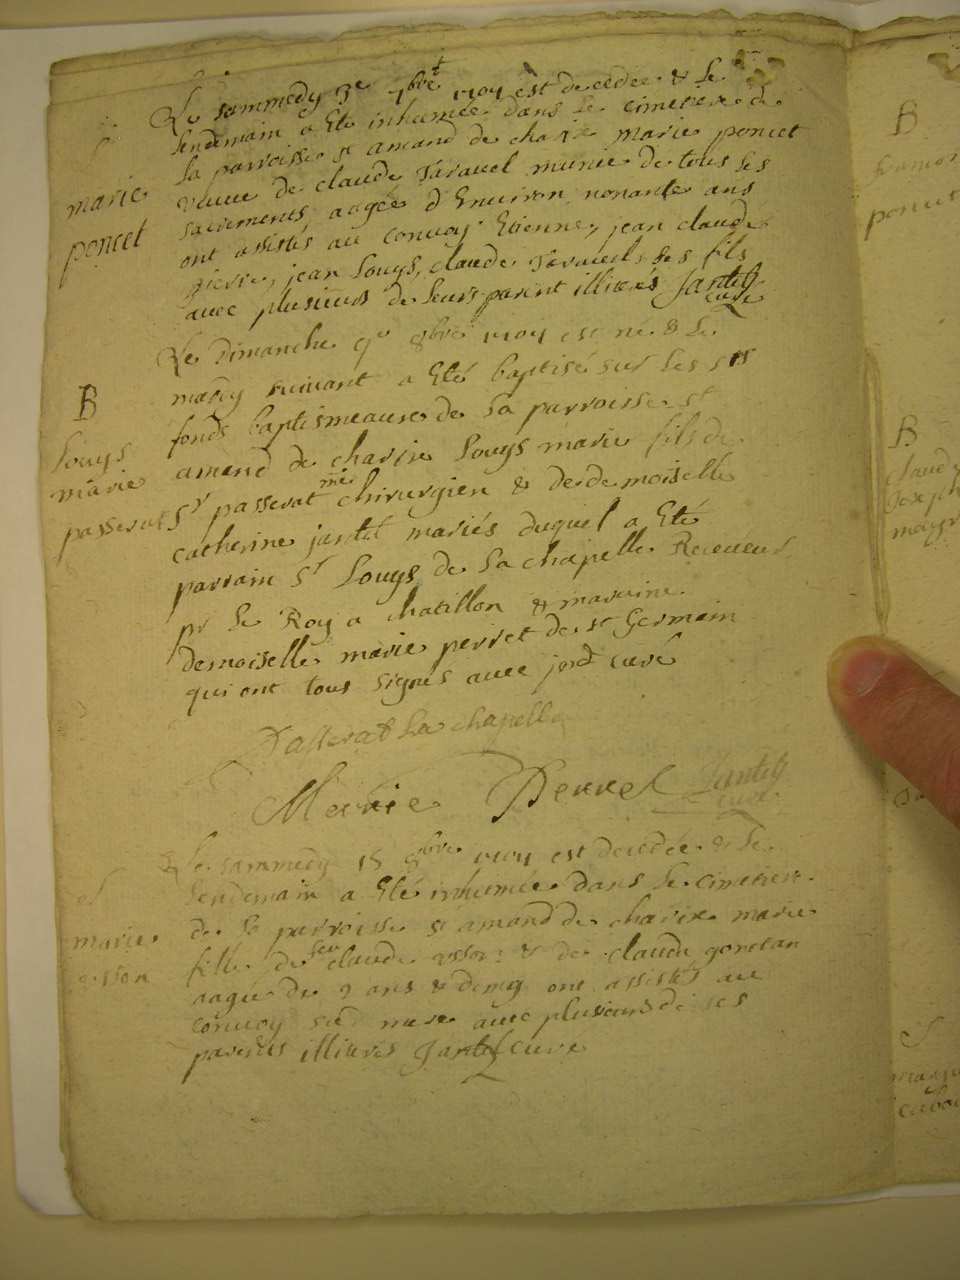 S
marie
poncet
Le sammedy 3e 7bre 1701 est decedee & le
lendemain a Eté inhumée dans le cimetiere de
la parroisse st amand de charix marie poncet
veuve de claude Taravel munie de tous les
sacrements aagée d'Environ nonante ans
ont assistés au convoy Etienne, jean claude
pierre, jean louys, claude Taravels ses fils
avec plusieurs de leurs parent illitrés Jantet
curé
B
louys
marie
passerat
Le Dimanche 9e 8bre 1701 est né & le
mardy suivant a Eté baptisé sur les sts
fonds baptismeaux de la parroisse st
amand de charix louys marie fils de
Sr passerat me chirurgien & de demoiselle
catherine jantet mariés duquel a Eté
parrain Sr louys de la chapelle Receveur
pr le Roy a chatillon & marraine
demoiselle marie perret de st Germain
qui ont tous signés avec jond curé
Passerat La chapelle
Marie Perret Jantet
curé
S
marie
le sammedy 15 8bre 1701 est decedée & le
lendemain a Eté inhumée dans le cimetiere
de la parroisse st amand de charix marie
fille de feu claude & de claude
aagée de 9 ans & demy ont assistés au
convoy sa mere avec plusieurs de ses
parents illitrés Jantet curé
B
poncet
B
claude
joseph
S